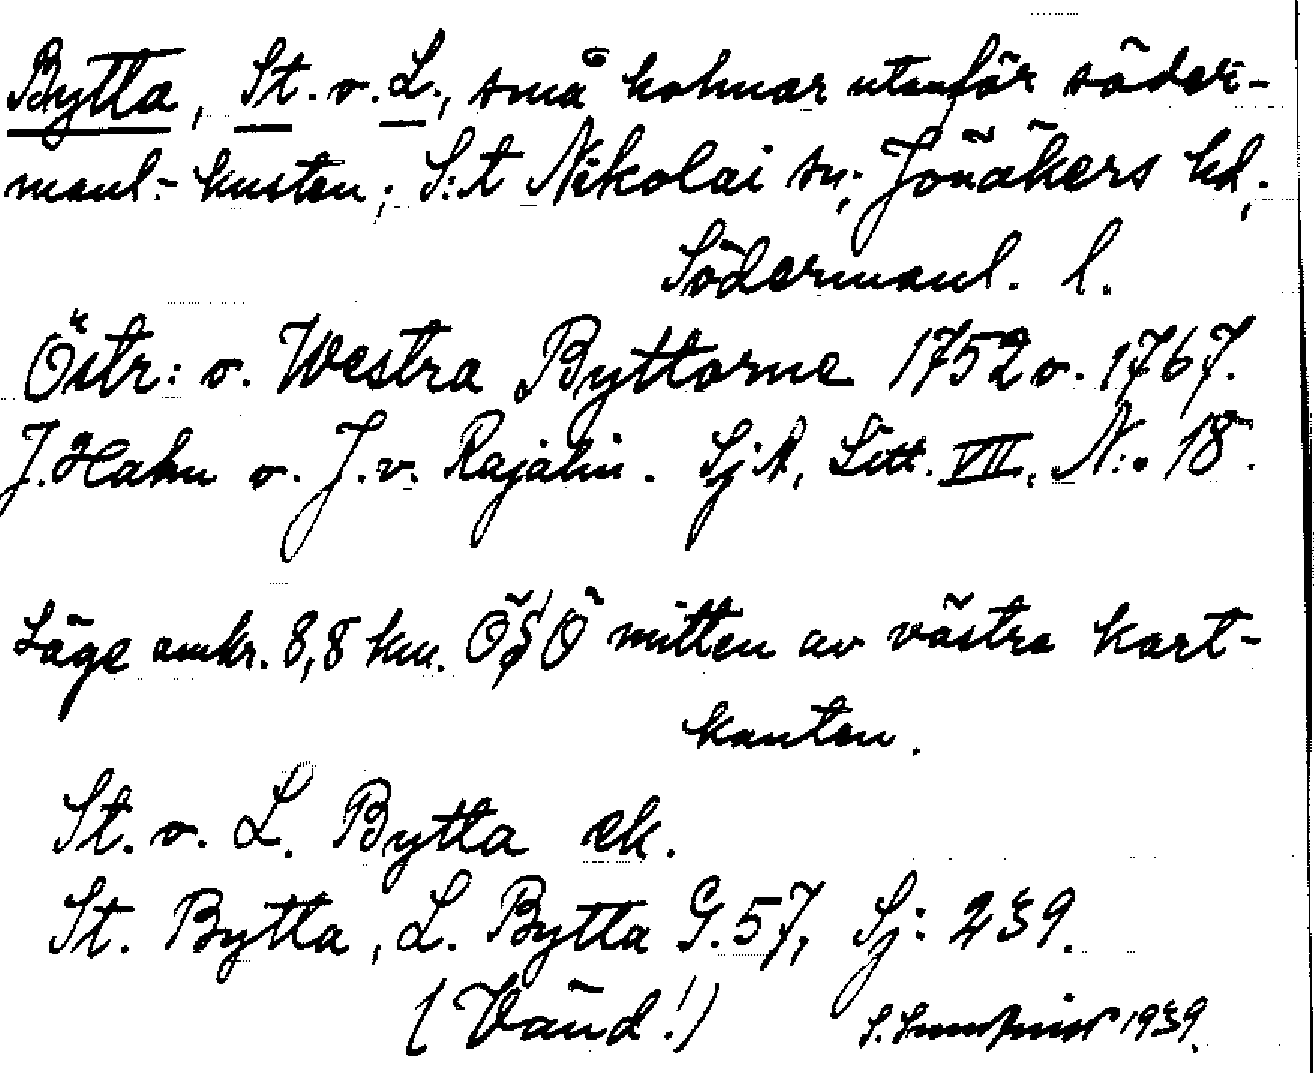 Bytta, St. o. L., små holmar utanför söder-
manl.- kusten; S:t Nikolai sn; Jönåkers hd,
Södermanl. l.
Östr: o. Westra Byttorne 1752 o. 1767.
J. Hahn o. J. v. Rajalin. Sj:A, Litt. VII, N:o 18.
Läge omkr. 8,8 km. ÖSÖ mitten av västra kart-
kanten.
St. o. L. Bytta ek.
St. Bytta, L. Bytta G. 57, Sj: 239.
(Vänd!) 1939.